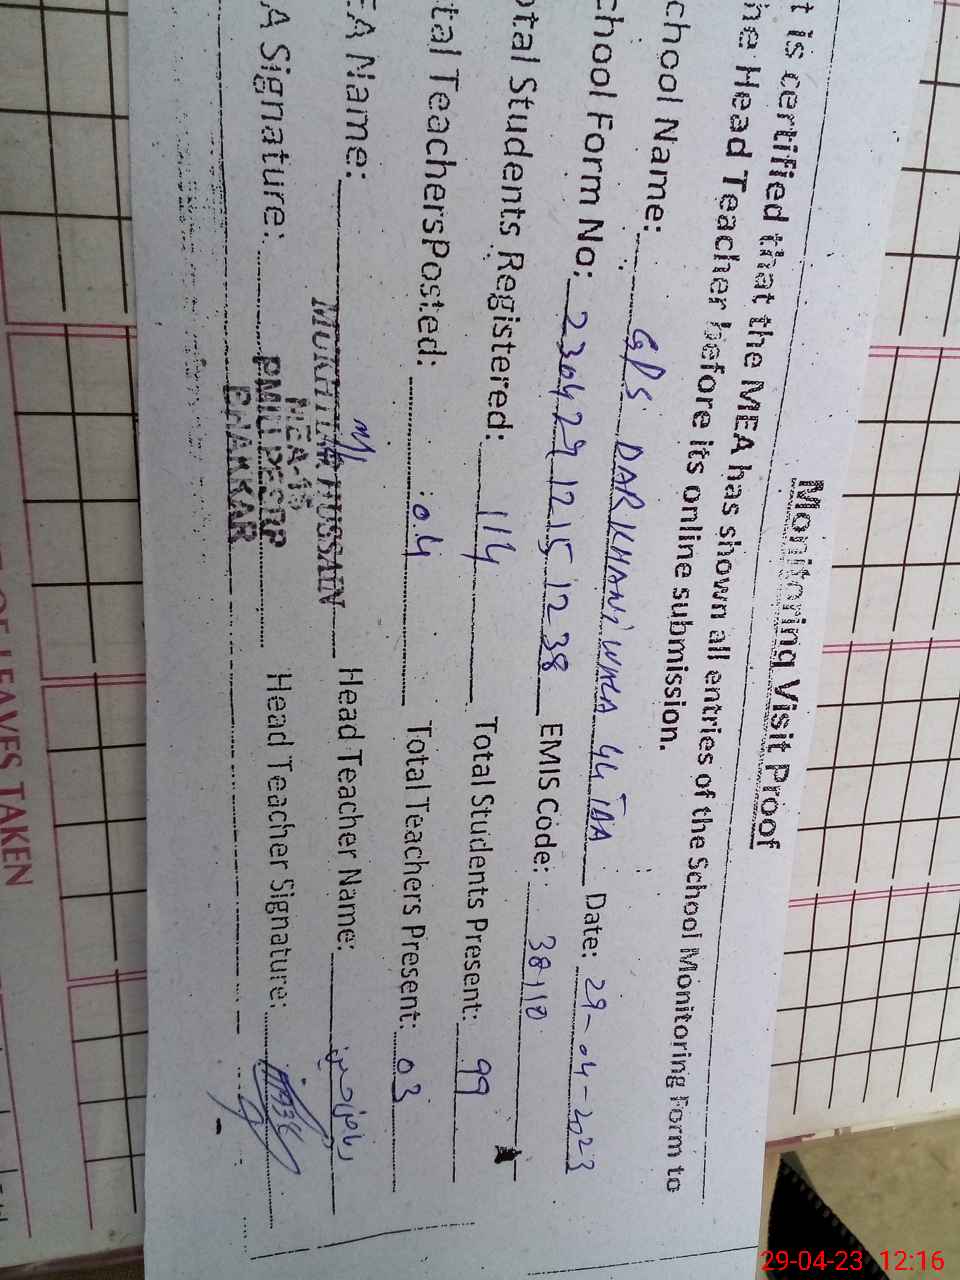 Monitoring Visit Proof
t is certified that the MEA has shown all entries of the School Monitoring Form to
he Head Teacher before its online submission.
chool Name: GPS DARKHANZWALA 44 TDA Date: 29-04-2023
chool Form No: 230429 1215 1238 EMIS Code: 38110
otal Students Registered: 114 Total Students Present: 99
tal TeachersPosted: 04 Total Teachers Present: 03
EA Name: MUKHTIAR HUSSAIN Head Teacher Name: ریاض حسین
A Signature: Head Teacher Signature:
MEA-15
PMIU PESRP
BHAKKAR
OF LEAVES TAKEN
29-04-23 12:16